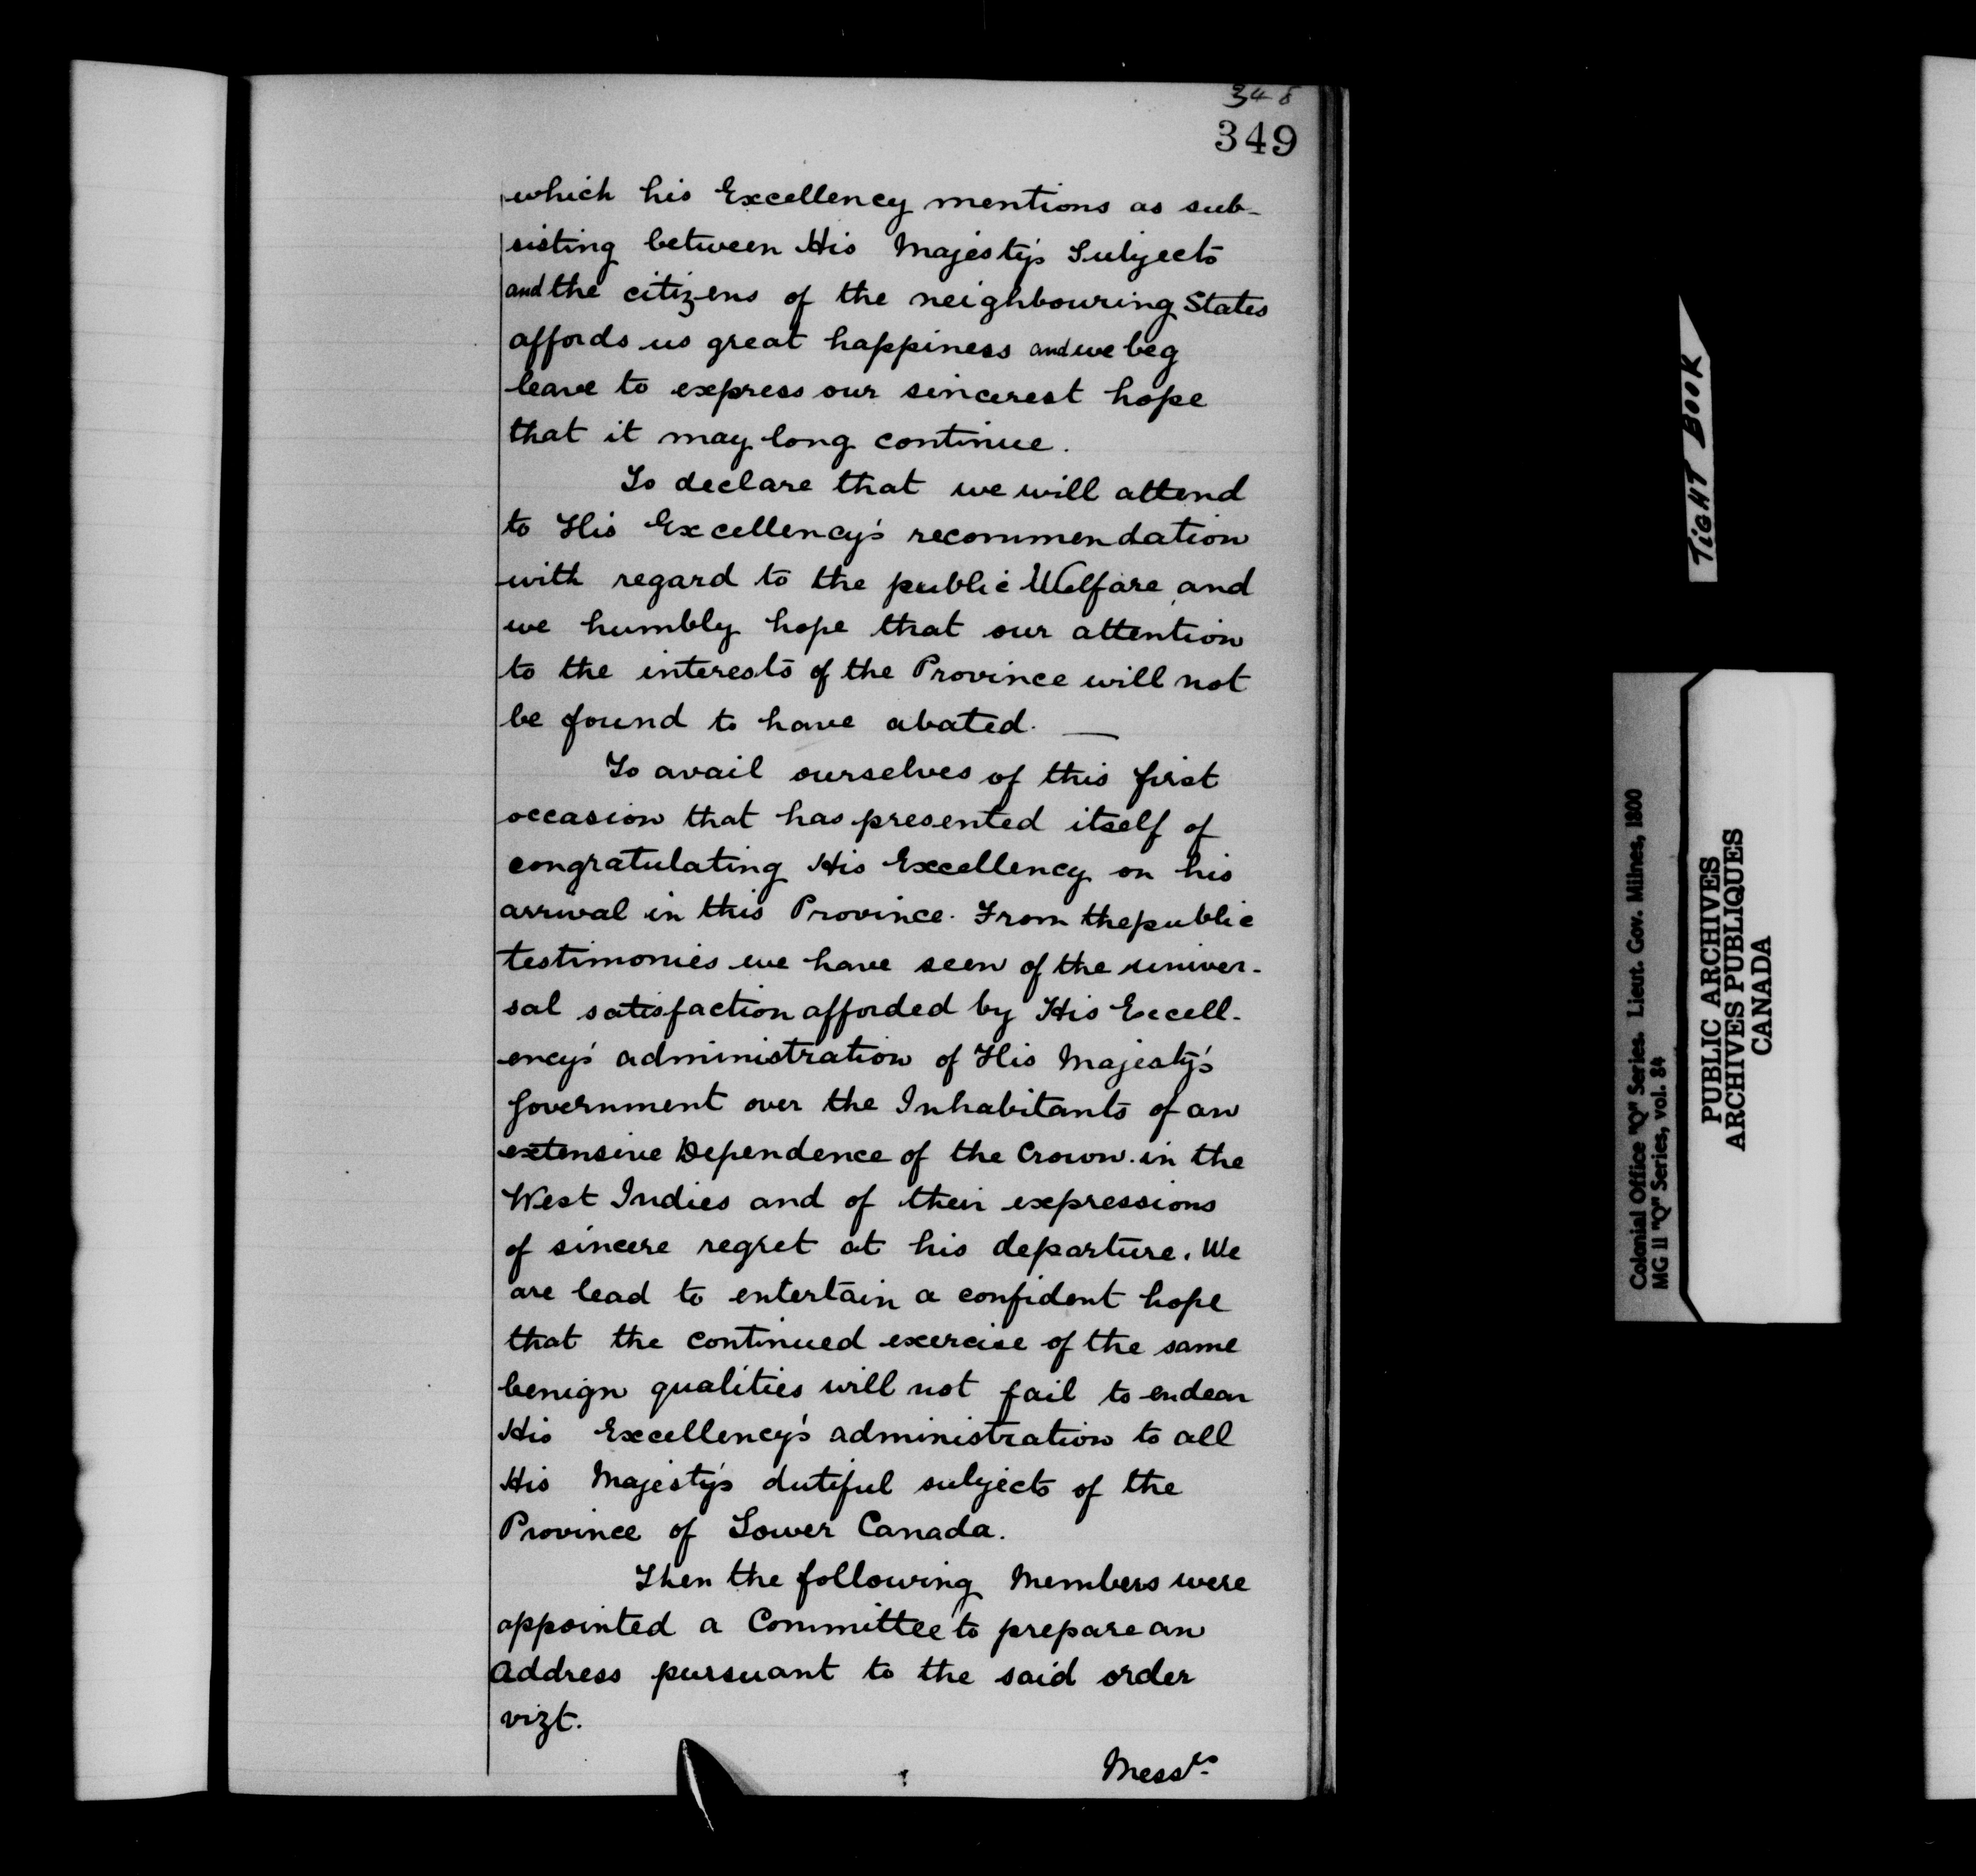 348
349
which his Excellency mentions as sub-
sisting between His Majesty's Subjects
and the citizens of the neighbouring States
affords us great happiness and we beg
leave to express our sincerest hope
that it may long continue.
To declare that we will attend
to His Excellency's recommendation
with regard to the public Welfare, and
we humbly hope that our attention
to the interests of the Province will not
be found to have abated. —
To avail ourselves of this first
occasion that has presented itself of
congratulating His Excellency on his
arrival in this Province. From the public
testimonies we have seen of the univer-
sal satisfaction afforded by His Excell-
ency's administration of His Majesty's
Government over the Inhabitants of an
extensive Dependence of the Crown in the
West Indies and of their expressions
of sincere regret at his departure. We
are lead to entertain a confident hope
that the continued exercise of the same
benign qualities will not fail to endear
His Excellency's administration to all
His Majesty's dutiful subjects of the
Province of Lower Canada.
Then the following Members were
appointed a Committee to prepare an
Address pursuant to the said order
vizt.
Messrs.
TIGHT BOOK
Colonial Office "Q" Series. Lieut. Gov. Milnes, 1800
MG 11 "Q" Series, vol. 84
PUBLIC ARCHIVES
ARCHIVES PUBLIQUES
CANADA